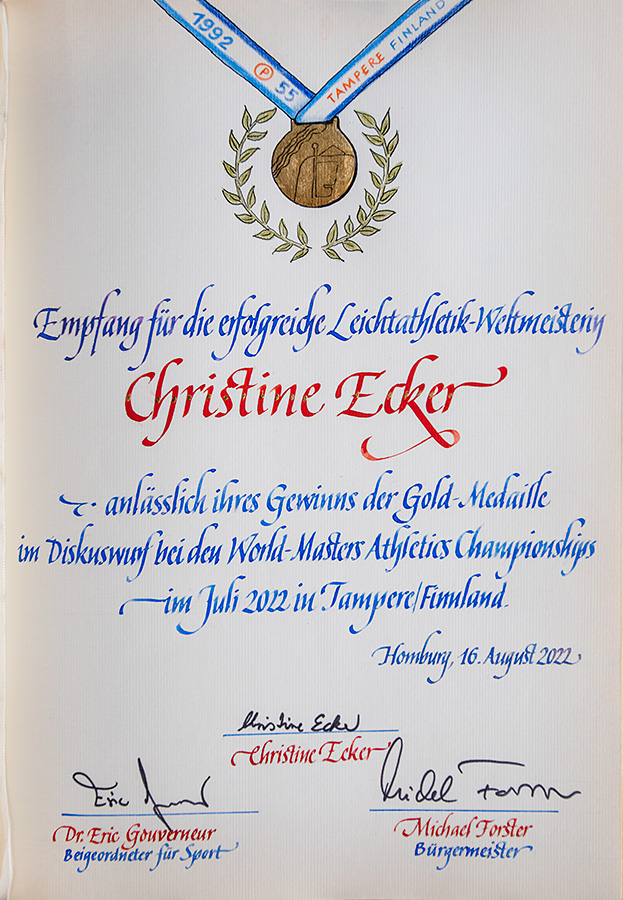 1992 Ⓟ 55
TAMPERE FINLAND
Empfang für die erfolgreiche Leichtathletik-Weltmeisterin
Christine Ecker
anlässlich ihres Gewinns der Gold-Medaille
im Diskuswurf bei den World-Masters Athletics Championships
im Juli 2022 in Tampere/Finnland.
Homburg, 16. August 2022
Christine Ecker
Christine Ecker
Eric
Michael Forster
Dr. Eric Gouverneur
Beigeordneter für Sport
Michael Forster
Bürgermeister